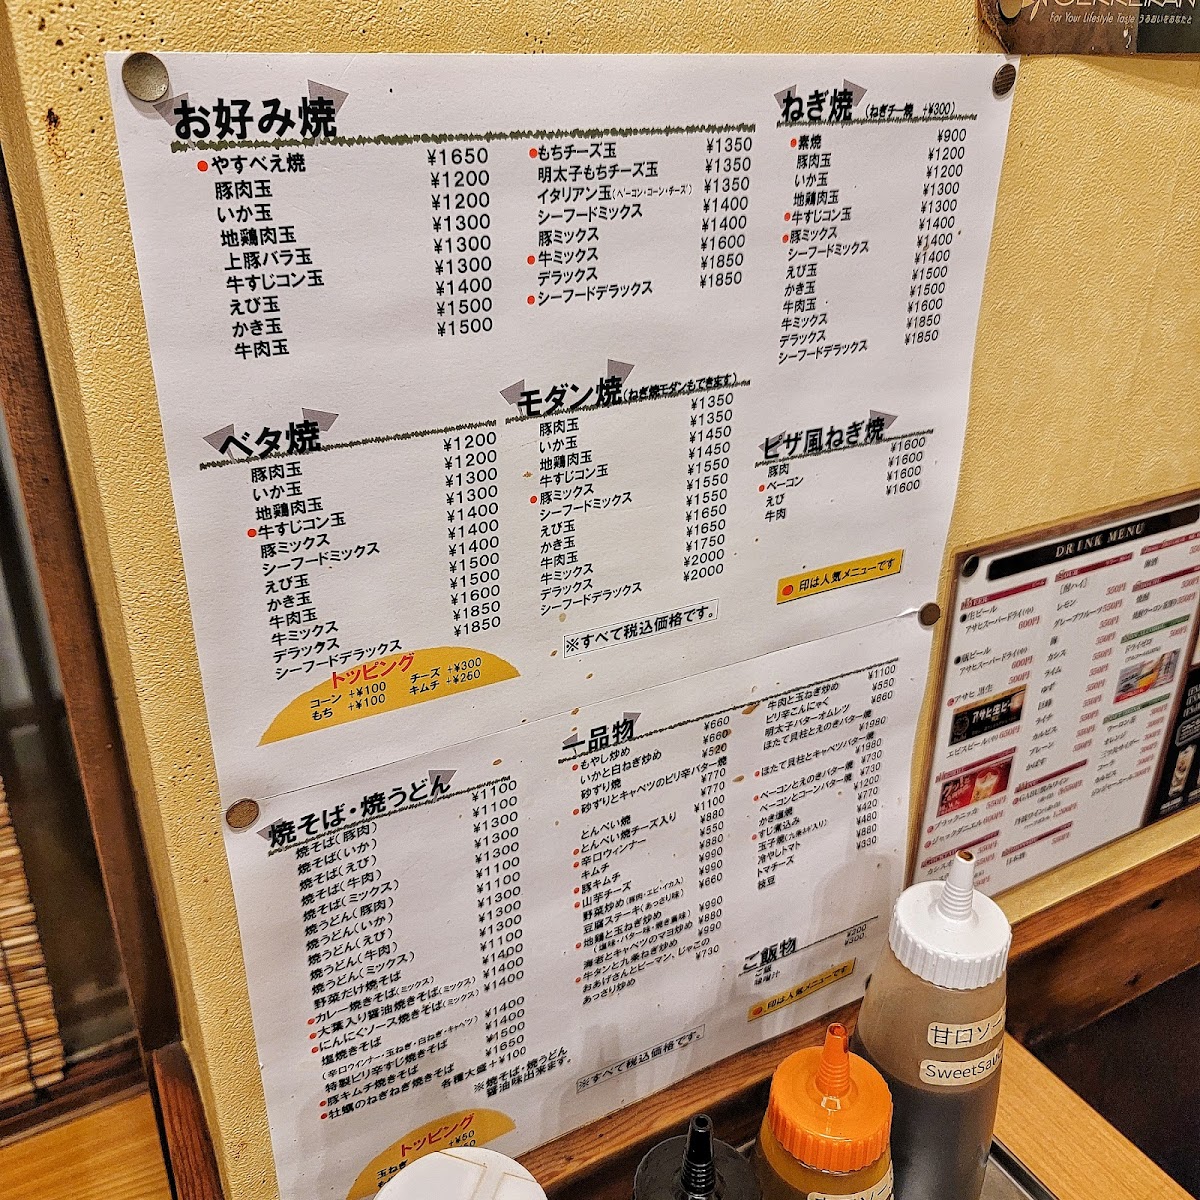 For Your Lifestyle Taste うるおいをあなたと
お好み焼
●やすべえ焼 ¥1650
豚肉玉 ¥1200
いか玉 ¥1200
地鶏肉玉 ¥1300
上豚バラ玉 ¥1300
牛すじコン玉 ¥1300
えび玉 ¥1400
かき玉 ¥1500
牛肉玉 ¥1500
●もちチーズ玉 ¥1350
明太子もちチーズ玉 ¥1350
イタリアン玉(ベーコン・コーン・チーズ) ¥1350
シーフードミックス ¥1400
豚ミックス ¥1400
●牛ミックス ¥1600
デラックス ¥1850
●シーフードデラックス ¥1850
ねぎ焼 (ねぎチー焼 +¥300)
●素焼 ¥900
豚肉玉 ¥1200
いか玉 ¥1200
地鶏肉玉 ¥1300
●牛すじコン玉 ¥1300
●豚ミックス ¥1400
シーフードミックス ¥1400
えび玉 ¥1400
かき玉 ¥1500
牛肉玉 ¥1500
牛ミックス ¥1600
デラックス ¥1850
シーフードデラックス ¥1850
ベタ焼
豚肉玉 ¥1200
いか玉 ¥1200
地鶏肉玉 ¥1300
●牛すじコン玉 ¥1300
豚ミックス ¥1400
シーフードミックス ¥1400
えび玉 ¥1400
かき玉 ¥1500
牛肉玉 ¥1500
牛ミックス ¥1600
デラックス ¥1850
シーフードデラックス ¥1850
トッピング
コーン +¥100 チーズ +¥300
もち +¥100 キムチ +¥250
モダン焼(ねぎ焼モダンもできます)
豚肉玉 ¥1350
いか玉 ¥1350
地鶏肉玉 ¥1450
牛すじコン玉 ¥1450
●豚ミックス ¥1550
シーフードミックス ¥1550
えび玉 ¥1550
かき玉 ¥1650
牛肉玉 ¥1650
牛ミックス ¥1750
デラックス ¥2000
シーフードデラックス ¥2000
※すべて税込価格です。
ピザ風ねぎ焼
豚肉 ¥1600
●ベーコン ¥1600
えび ¥1600
牛肉 ¥1600
●印は人気メニューです
焼そば・焼うどん
焼そば(豚肉) ¥1100
焼そば(いか) ¥1100
焼そば(えび) ¥1300
焼そば(牛肉) ¥1300
焼そば(ミックス) ¥1300
焼うどん(豚肉) ¥1100
焼うどん(いか) ¥1100
焼うどん(えび) ¥1300
焼うどん(牛肉) ¥1300
焼うどん(ミックス) ¥1300
野菜だけ焼そば ¥1100
●カレー焼きそば(ミックス) ¥1400
●大葉入り醤油焼きそば(ミックス) ¥1400
●にんにくソース焼きそば(ミックス) ¥1400
塩焼きそば ¥1400
(辛口ウィンナー・玉ねぎ・白ねぎ・キャベツ)
特製ピリ辛すじ焼きそば ¥1400
●豚キムチ焼きそば ¥1500
●牡蠣のねぎねぎ焼きそば ¥1650
各種大盛 +¥100
※焼そば・焼うどん
醤油味出来ます。
トッピング
玉ねぎ +¥50
一品物
●もやし炒め ¥660
いかと白ねぎ炒め ¥660
砂ずり焼 ¥520
砂ずりとキャベツのピリ辛バター焼 ¥770
とんぺい焼 ¥770
●とんぺい焼チーズ入り ¥1100
●辛口ウィンナー ¥880
キムチ ¥550
●豚キムチ ¥880
●山芋チーズ ¥990
野菜炒め(豚肉・エビ・イカ入) ¥990
豆腐ステーキ(あっさり味) ¥660
●地鶏と玉ねぎ炒め ¥990
(塩味・バター味・焼き鳥味)
海老とキャベツのマヨ炒め ¥880
●牛タンと九条ねぎ炒め ¥990
おあげさんとピーマン、じゃこの
あっさり炒め ¥730
牛肉と玉ねぎ炒め ¥1100
ピリ辛こんにゃく ¥550
明太子バターオムレツ ¥660
ほたて貝柱とえのきバター焼 ¥1980
●ほたて貝柱とキャベツバター焼 ¥1980
●ベーコンとえのきバター焼 ¥730
ベーコンとコーンバター焼 ¥730
かき塩焼 ¥1200
●すじ煮込み ¥770
玉子焼(九条ネギ入り) ¥420
冷やしトマト ¥480
トマチーズ ¥880
枝豆 ¥330
ご飯物
ご飯 ¥200
味噌汁 ¥300
●印は人気メニューです
※すべて税込価格です。
DRINK MENU
BEER
●生ビール
アサヒスーパードライ(中) 600円
●瓶ビール
アサヒスーパードライ(中) 600円
●アサヒ 黒生
エビスビール(中) 650円
[酎ハイ]
レモン 550円
グレープフルーツ 550円
カシス 550円
ライム 550円
ゆず 550円
巨峰
ライチ
カルピス
プレーン
●ブラックニッカ
●ジャックダニエル
日本酒
甘口ソース
SweetSauce